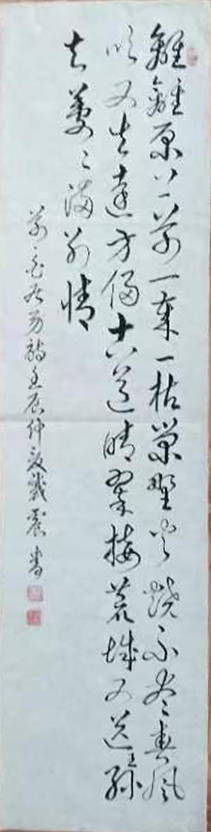 離離原上草一歲一枯榮野火燒不盡春風
吹又生遠芳侵古道晴翠接荒城又送王孫
去萋々滿別情
白居易詩壬辰仲夏書